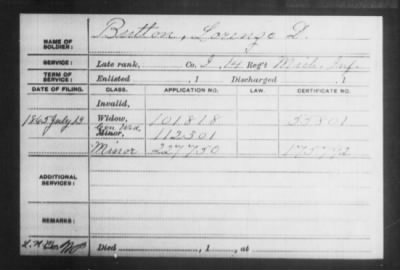 NAME OF SOLDIER: Button, Lorenzo D.
SERVICE: Late rank, Co. I, 14 Reg't Mich. Inf.
TERM OF SERVICE: Enlisted , 1 Discharged , 1
DATE OF FILING. CLASS. APPLICATION NO. LAW. CERTIFICATE NO.
Invalid,
1865 July 13 Widow, 101818 55801
Minor, 112301
Minor 227750 175792
ADDITIONAL SERVICES:
REMARKS:
Died , 1 , at